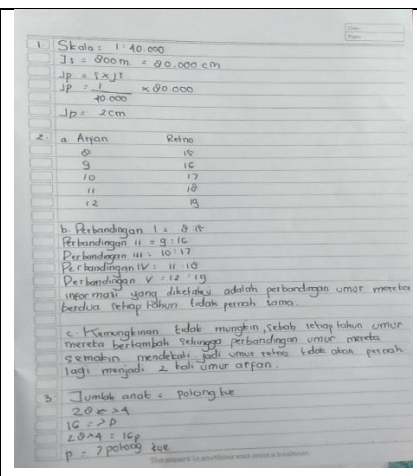 1. Skala = 1:40.000
Js = 800m = 80.000 cm
Jp = s x js
Jp = 1/40.000 x 80.000
Jp = 2cm
2. a Arfan Retno
8 15
9 16
10 17
11 18
12 19
b. Perbandingan I = 8:15
Perbandingan II = 9:16
Perbandingan III = 10:17
Perbandingan IV = 11:18
Perbandingan V = 12:19
informasi yang diketahui adalah perbandingan umur mereka
berdua setiap tahun tidak pernah sama.
c. Kemungkinan tidak mungkin, sebab setiap tahun umur
mereka bertambah sehingga perbandingan umur mereka
semakin mendekati jadi umur retno tidak akan pernah
lagi menjadi 2 kali umur arfan.
3. Jumlah anak = potong kue
28 => 4
16 => p
28 x 4 = 16p
p = 7 potong kue